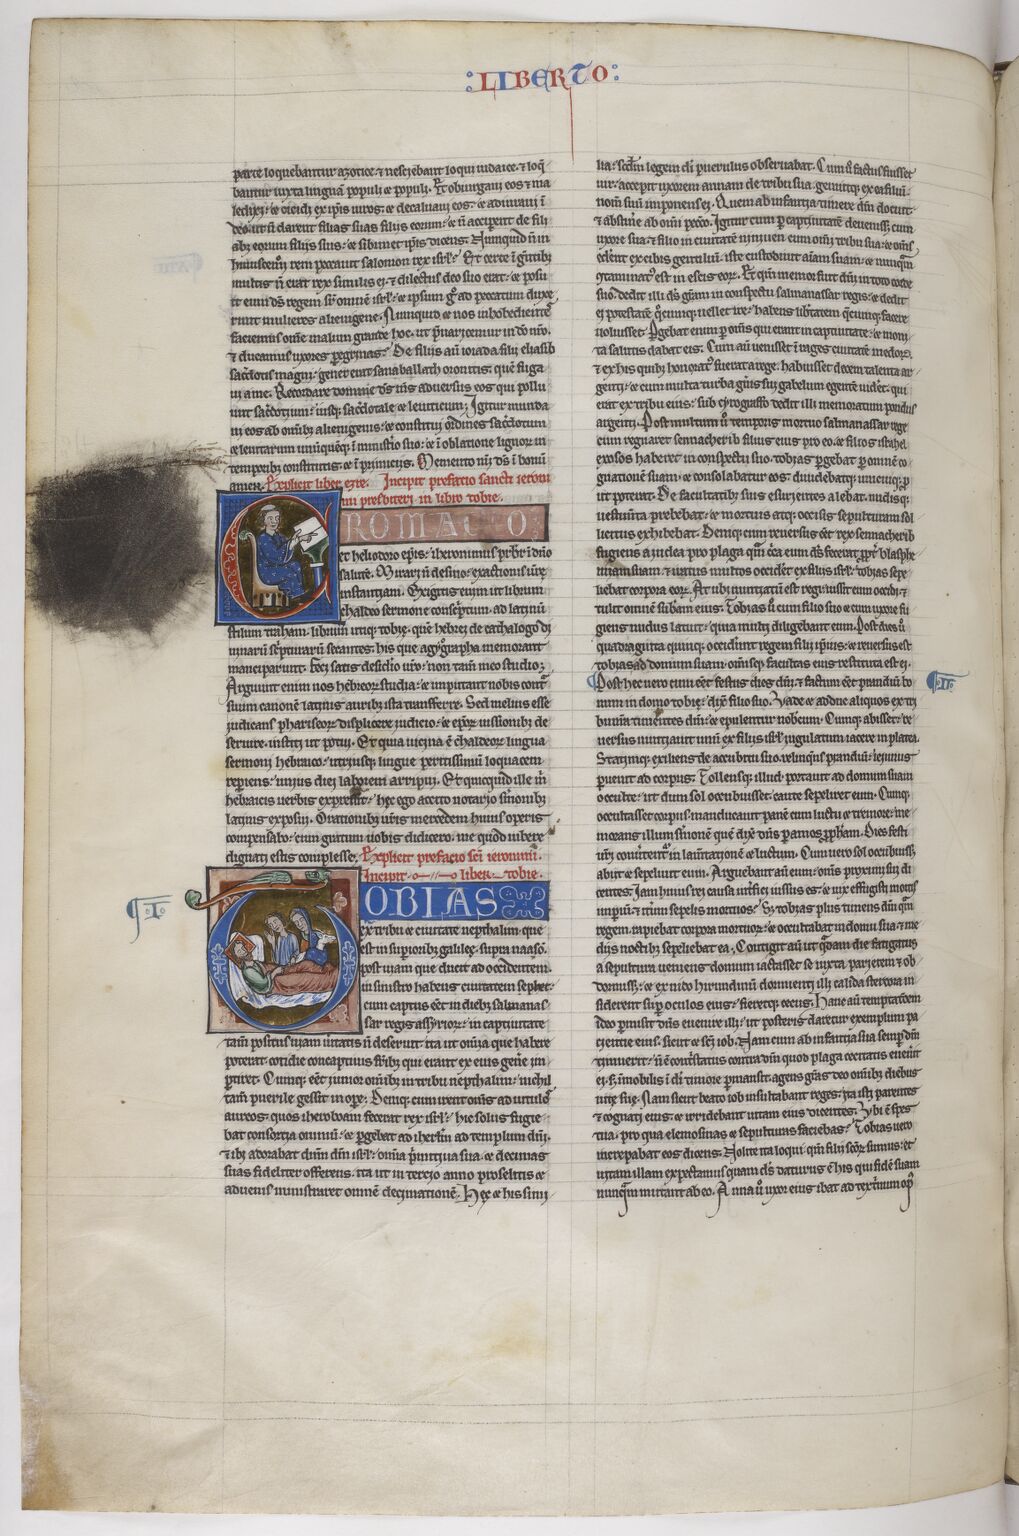 LIBER TO
parte loquebantur azotice. & nesciebant loqui iudaice. & loq̄
bantur iuxta linguā populi & populi. Et obiurgaui eos & ma
ledixi. & cecidi ex ip̄is uiros. & decaluaui eos. & adiuraui ī
deo. ut ñ darent filias suas filiis eorum. & ñ acciperent de fili
abꝫ eorum filiis suis. & sibimet ip̄is dicens. Nunquid ñ in
huiuscemōi rem peccauit salomon rex isrł. Et certe ī gentibꝫ
multis ñ erat rex similis ei. & dilectus deo suo erat. & posu
it eum dꝰ regem sr̄ omnē isrł. & ipsum gͦ ad peccatum duxe
runt mulieres alienigene. Nunquid & nos inobedientes
faciemus om̄e malum grande hoc. ut p̄uaricemur in dō nr̄o.
& ducamus uxores pegrinas. De filiis aū ioiada filii eliasib
sac̄dotis magni. gener erat sanaballath oronitis. quē fuga
ui a me. Recordare domine dꝰ mꝰ aduersus eos qui pollu
unt sac̄dotium. iusq; sac̄dotale & leuiticum. Igitur munda
ui eos ab omibꝫ alienigenis. & constitui ordines sac̄dotum
& leuitarum unūquēq; ī ministio suo. & ī oblatione lignor in
temporibꝫ constitutis. & ī p̄imiciis. Memento mi dꝰ ī bonū
amen. Explicit liber ezre. Incipit prefatio sancti ieroni
mi presbiteri in libro tobie.
CROMATIO
et heliodoro epis. iheronimus pr̄br ī dño
salutē. Mirari ñ desino. exactionis ur̄e
instantiam. Exigitis enim ut librum
chaldeo sermone conscriptum. ad latinū
stilum traham. librum utiq; tobie. quē hebrei de cathalogo di
uinarū scripturarū secantes. his que agyographa memorant
manciparunt. Feci satis desidio ur̄o. non tam meo studio;
Arguunt enim nos hebreor studia. & inputant nobis contᵃ
suum canonē latinis auribꝫ ista transferre. Sed melius esse
iudicans phariseor displicere iudicio. & epōr iussionibꝫ de
seruire. institi ut potui. Et quia uicina ē chaldeor lingua
sermoni hebraico. utriusq; lingue peritissimū loquacem
reperiens. unius diei laborem arripui. Et quicquid ille m̄
hebraicis uerbis expressit. hec ego accito notario sermonibꝫ
latinis exposui. Orationibꝫ uris mercedem huius operis
compensabo. cum gratum uobis didicero. me quod iubere
dignati estis complesse. Explicit prefacio sc̄i ieronimi.
Incipit liber tobie.
I
TOBIAS
ex tribu & ciuitate nepthalim. que
est in supioribꝫ galilee. supra naason.
post uiam que ducit ad occidentem.
in sinistro habens ciuitatem sephet.
cum captus eēt in diebꝫ salmanas
sar regis assyrior. in captiuitate
tam positus uiam ūitatis ñ deseruit. ita ut omīa que habere
poterat cotidie concaptiuis fr̄ibꝫ qui erant ex eius gen̄e im
ptiret. Cumq; eēt iunior omibꝫ in tribu nepthalim. nichil
tam puerile gessit in oꝑe. Deniq; cum irent om̄s ad uitulos
aureos. quos iheroboam fecerat rex isrł. hic solus fugie
bat consortia omnium. & pgebat ad ihrłm ad templum dn̄i.
& ibi adorabat dn̄m dm̄ isrł. omīa p̄mitiua sua & decimas
suas fideliter offerens. ita ut in tercio anno proselitis &
aduenis ministraret omnē decimationē. Hec & his simi
lia. scdm legem di puerulus obseruabat. Cum ū factus fuisset
uir. accepit uxorem annam de tribu sua. genuitq; ex ea filiū.
nom̄ suū imponens ei. Quem ab infantia timere dm̄ docuit.
& abstine ab om̄i pecco. Igitur cum p captiuitatē deueniss; cum
uxore sua. & filio in ciuitatē niniuen cum om̄i tribu sua. & om̄s
ederent ex cibis gentiliū. iste custodiuit aīam suam. & nunquā
ctaminatꝰ est in escis eor. Et qm̄ memor fuit dn̄i in toto corde
suo. dedit illi dꝰ gr̄am in conspectu salmanassar regis. & dedit
ei potestatē q̄cunq; uellet ire. habens libtatem q̄cunq; facere
uoluisset. Pgebat enim p om̄s qui erant in captiuitate. & moni
ta salutis dabat eis. Cum aū uenisset ī rages ciuitatē medor.
& ex his quibꝫ honoratꝰ fuerat a rege. habuisset decem talenta ar
genti. & cum multa turba gn̄is sui gabelum egentē uidēt. qui
erat ex tribu eius. sub cyrograffo dedit illi memoratum pondus
argenti. Post multum ū temporis mortuo salmanassar rege
cum regnaret sennacherib filius eius pro eo. & filios israhel
exosos haberet in conspectu suo. tobias pgebat p omnē co
gnationē suam. & consolabatur eos. diuidebatq; unicuiq; p
ut poterat. De facultatibꝫ suis esurientes alebat. nudisq;
uestimta prebebat. & mortuis atq; occisis sepulturam sol
licitus exhibebat. Deniq; cum reuersus eēt rex sennacherib
fugiens a iudea pro plaga quā cͨa eum dꝰ fecerat ppr̄ blasphe
miam suam. & iratus multos occidet ex filiis isrł. tobias sepe
liebat corpora eor. At ubi nuntiatū est regi. iussit eum occidi. &
tulit omnē sub̄am eius. Tobias ū cum filio suo & cum uxore fu
giens nudus latuit. quia multi diligebant eum. Post dies ū
quadraginta quinq; occiderunt regem filii ip̄ius. & reuersus est
tobias ad domum suam. om̄isq; facultas eius restituta est ei.
II
Post hec uero cum eēt festus dies dn̄i. & factum eēt prandiū bo
num in domo tobie. dixit filio suo. Vade & adduc aliquos ex tri
bu nr̄a timentes dm̄. & epulentur nobcum. Cumq; abisset. re
uersus nuntiauit unū ex filiis isrł iugulatum iacere in platea.
Statimq; exiliens de accubitu suo. relinq̄ns prandiū. ieiunus
puenit ad corpus. Tollensq; illud. portauit ad domum suam
occulte. ut dum sol occubuisset. caute sepeliret eum. Cumq;
occultasset corpus. manducauit panē cum luctu & tremore. me
morans illum s̄monē quē dixit dn̄s p amos pph̄am. Dies festi
ur̄i conuertentᵣ in lamtationē & luctum. Cum uero sol occubuiss;
abiit & sepeliuit eum. Arguebant aū eum om̄s proximi sui di
centes. Iam huius rei causa intfici iussus es. & uix effugisti mortis
impiū. & itm̄ sepelis mortuos. Sꝫ tobias plus timens dm̄ quā
regem. rapiebat corpora mortuor. & occultabat in domo sua. & me
diis noctibꝫ sepeliebat ea. Contigit aū ut qdam die fatigatus
a sepultura ueniens domum. iactasset se iuxta parietem & ob
dormiss;. & ex nido hirundinū dormienti illi calida stercora in
siderent sup oculos eius. fieretq; cecus. Hanc aū temptationem
ideo pmisit dn̄s euenire illi. ut posteris daretur exemplum pa
tientie eius. sicut & sc̄i iob. Nam cum ab infantia sua semp dm̄
timuerit. ñ ē contstatus contra dm̄ quod plaga cecitatis eueñit
ei. sꝫ īmobilis ī di timore pmansit. agens grās deo omibꝫ diebus
uite sue. Nam sicut beato iob insultabant reges. ita isti parentes
& cognati eius. & irridebant uitam eius dicentes. Vbi ē spes
tua. pro qua elemosinas & sepulturas faciebas. Tobias uero
increpabat eos dicens. Nolite ita loqui. qm̄ filii sc̄or sumus. et
uitam illam expectamus quam dꝰ daturus ē his qui fidē suam
nunquam mutant ab eo. Anna ū uxor eius ibat ad textrinum opꝰ